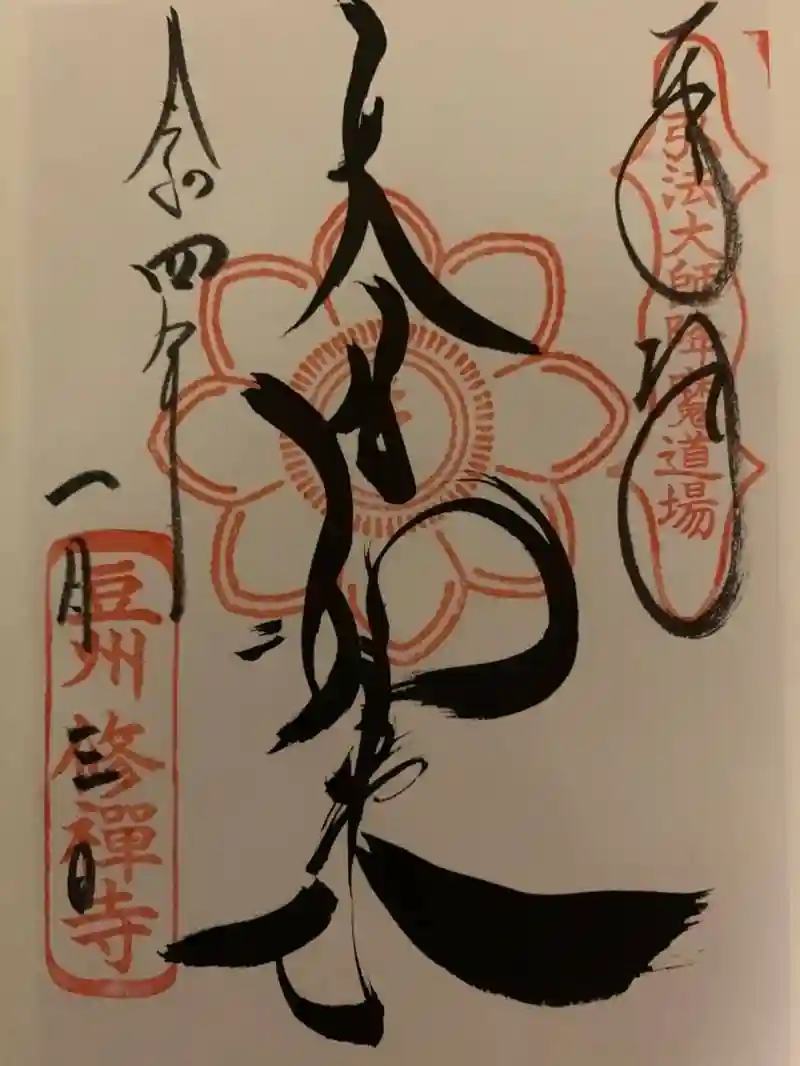 奉拝
弘法大師降魔道場
大日如来
令和四年
一月三日
豆州 修禅寺